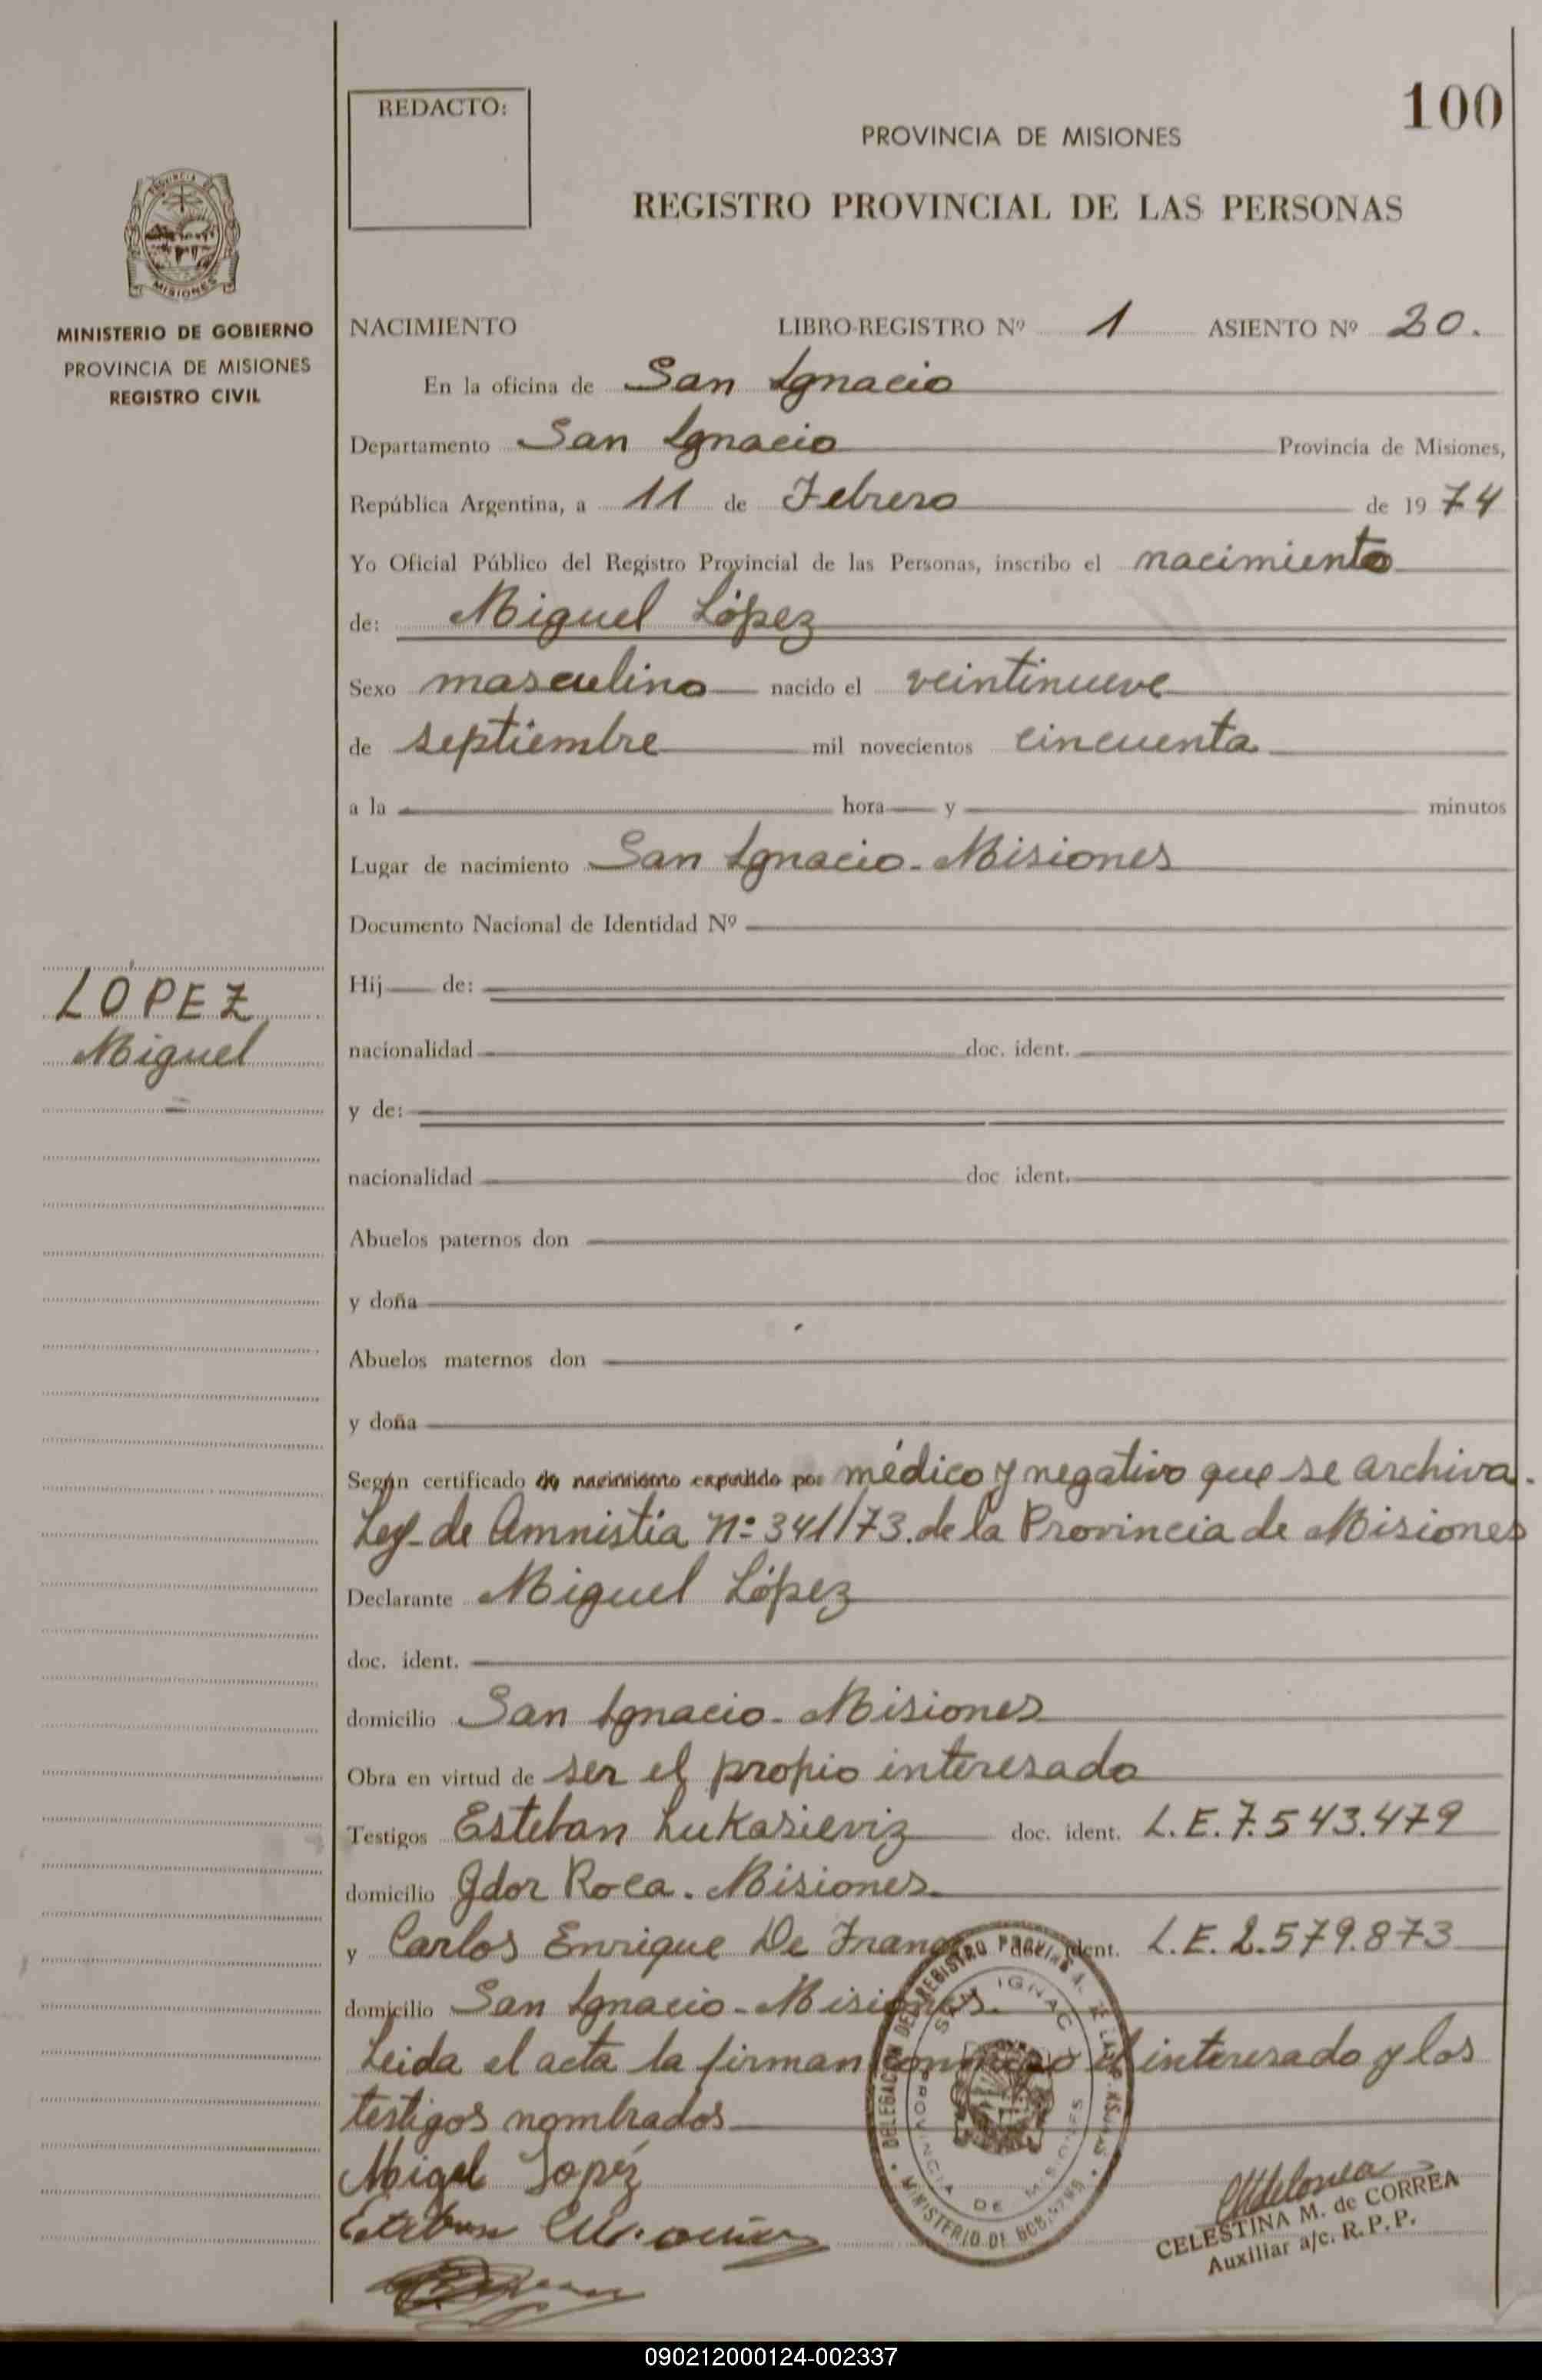 100
REDACTO:
PROVINCIA DE MISIONES
REGISTRO PROVINCIAL DE LAS PERSONAS
PROVINCIA DE
MISIONES
MINISTERIO DE GOBIERNO
PROVINCIA DE MISIONES
REGISTRO CIVIL
NACIMIENTO LIBRO-REGISTRO Nº 1 ASIENTO Nº 20.
En la oficina de San Ignacio
Departamento San Ignacio Provincia de Misiones,
República Argentina, a 11 de Febrero de 1974
Yo Oficial Público del Registro Provincial de las Personas, inscribo el nacimiento
de: Miguel López
Sexo masculino nacido el veintinueve
de septiembre mil novecientos cincuenta
a la hora y minutos
Lugar de nacimiento San Ignacio - Misiones
Documento Nacional de Identidad Nº
LÓPEZ
Miguel
Hij de:
nacionalidad doc. ident.
y de:
nacionalidad doc ident.
Abuelos paternos don
y doña
Abuelos maternos don
y doña
Según certificado de nacimiento expedido por médico y negativo que se archiva.
Ley de Amnistia nº 341/73. de la Provincia de Misiones
Declarante Miguel López
doc. ident.
domicilio San Ignacio - Misiones
Obra en virtud de ser el propio interesado
Testigos Esteban Lukasieviz doc. ident. L.E. 7.543.479
domicilio Gdor Roca. Misiones.
y Carlos Enrique De Franco doc. ident. L.E. 2.579.873
domicilio San Ignacio - Misiones.
Leida el acta la firman conmigo el interesado y los
testigos nombrados
Migel Lopéz
Esteban
DELEGACION DEL REGISTRO PROVINCIAL DE LAS PERSONAS
SAN IGNACIO
PROVINCIA DE MISIONES
MINISTERIO DE GOBIERNO
CELESTINA M. de CORREA
Auxiliar a/c. R. P. P.
090212000124-002337